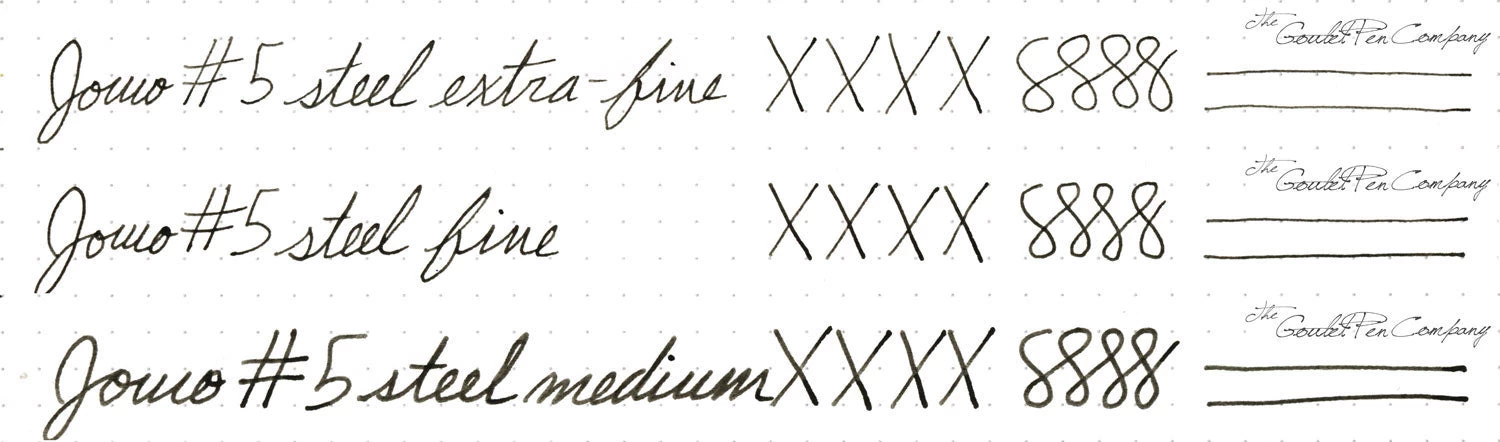 The Goulet Pen Company
Jowo #5 steel extra-fine XXXX 8888
The Goulet Pen Company
Jowo #5 steel fine XXXX 8888
The Goulet Pen Company
Jowo #5 steel medium XXXX 8888